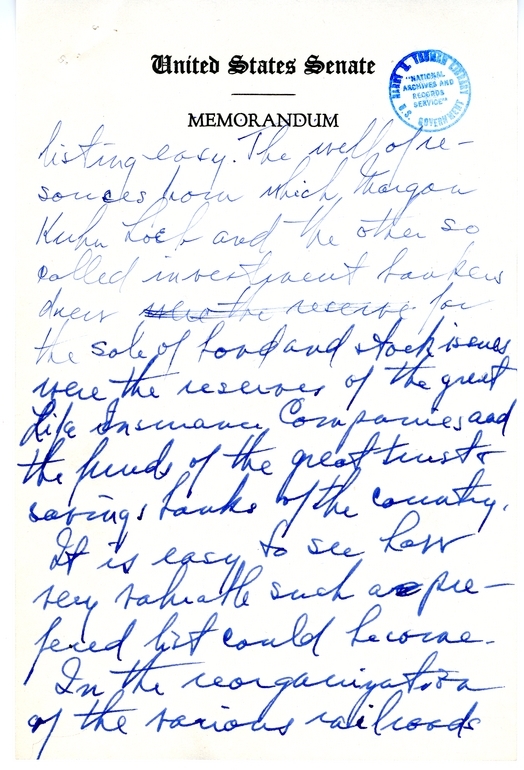 United States Senate
MEMORANDUM
HARRY S. TRUMAN LIBRARY
"NATIONAL
ARCHIVES AND
RECORDS
SERVICE"
U.S. GOVERNMENT
listing easy. The well of re-
sources from which Morgan
Kuhn Loeb and the other so
called investment bankers
drew were the reserve for
the sale of bond and stock issues
were the reserves of the great
Life Insurance Companies and
the funds of the great trust &
savings banks of the country.
It is easy to see how
very valuable such a pre-
fered list could become.
In the reorganization
of the various railroads